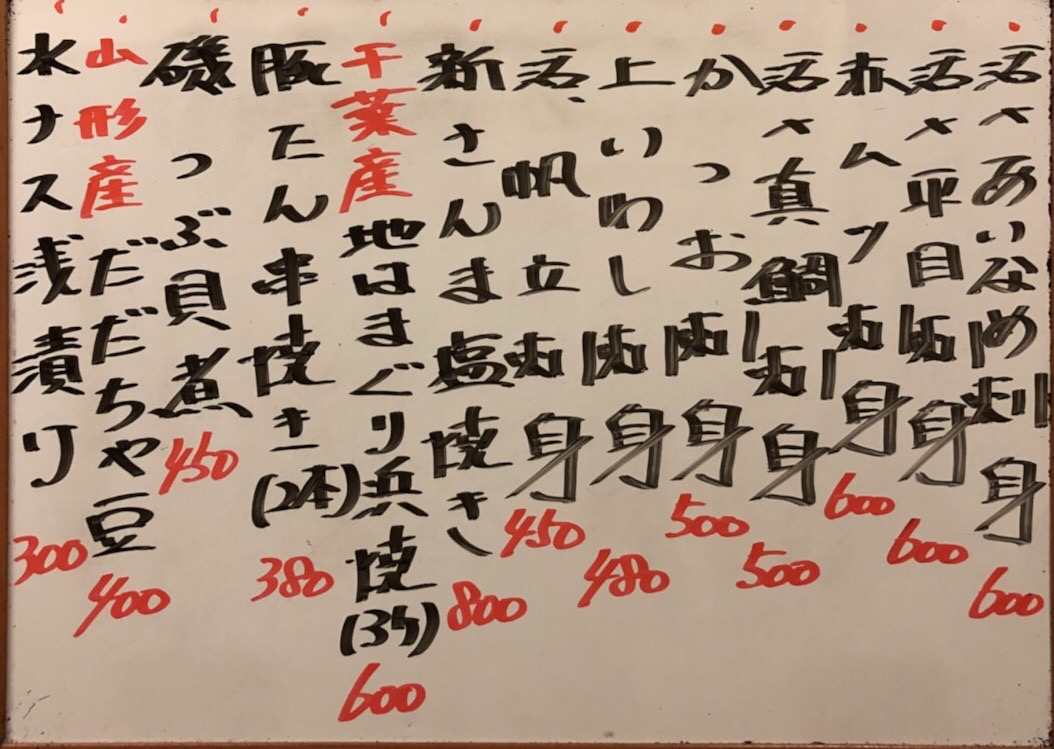 活〆あいなめ刺身 600
活〆平目刺身 600
赤ムツ刺身 600
活〆真鯛刺身 500
かつお刺身 500
上いわし刺身 480
活帆立刺身 450
新さんま塩焼き 800
千葉産地はまぐり浜焼(3ヶ) 600
豚たん串焼き(2本) 380
磯つぶ貝煮 450
山形産だだちゃ豆 400
水ナス浅漬り 300